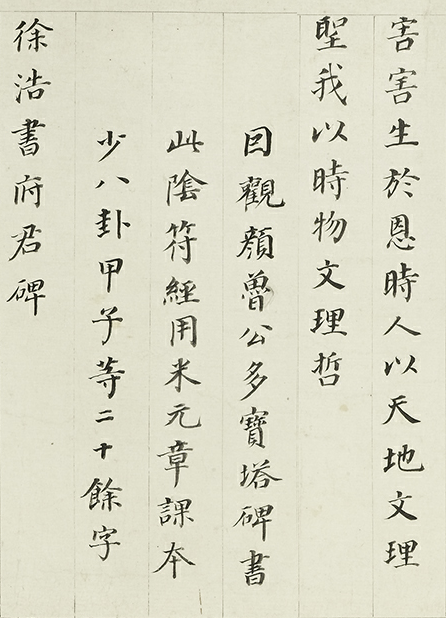 害害生於恩時人以天地文理
聖我以時物文理哲
因觀顏魯公多寶塔碑書
此陰符經用米元章課本
少八卦甲子等二十餘字
徐浩書府君碑